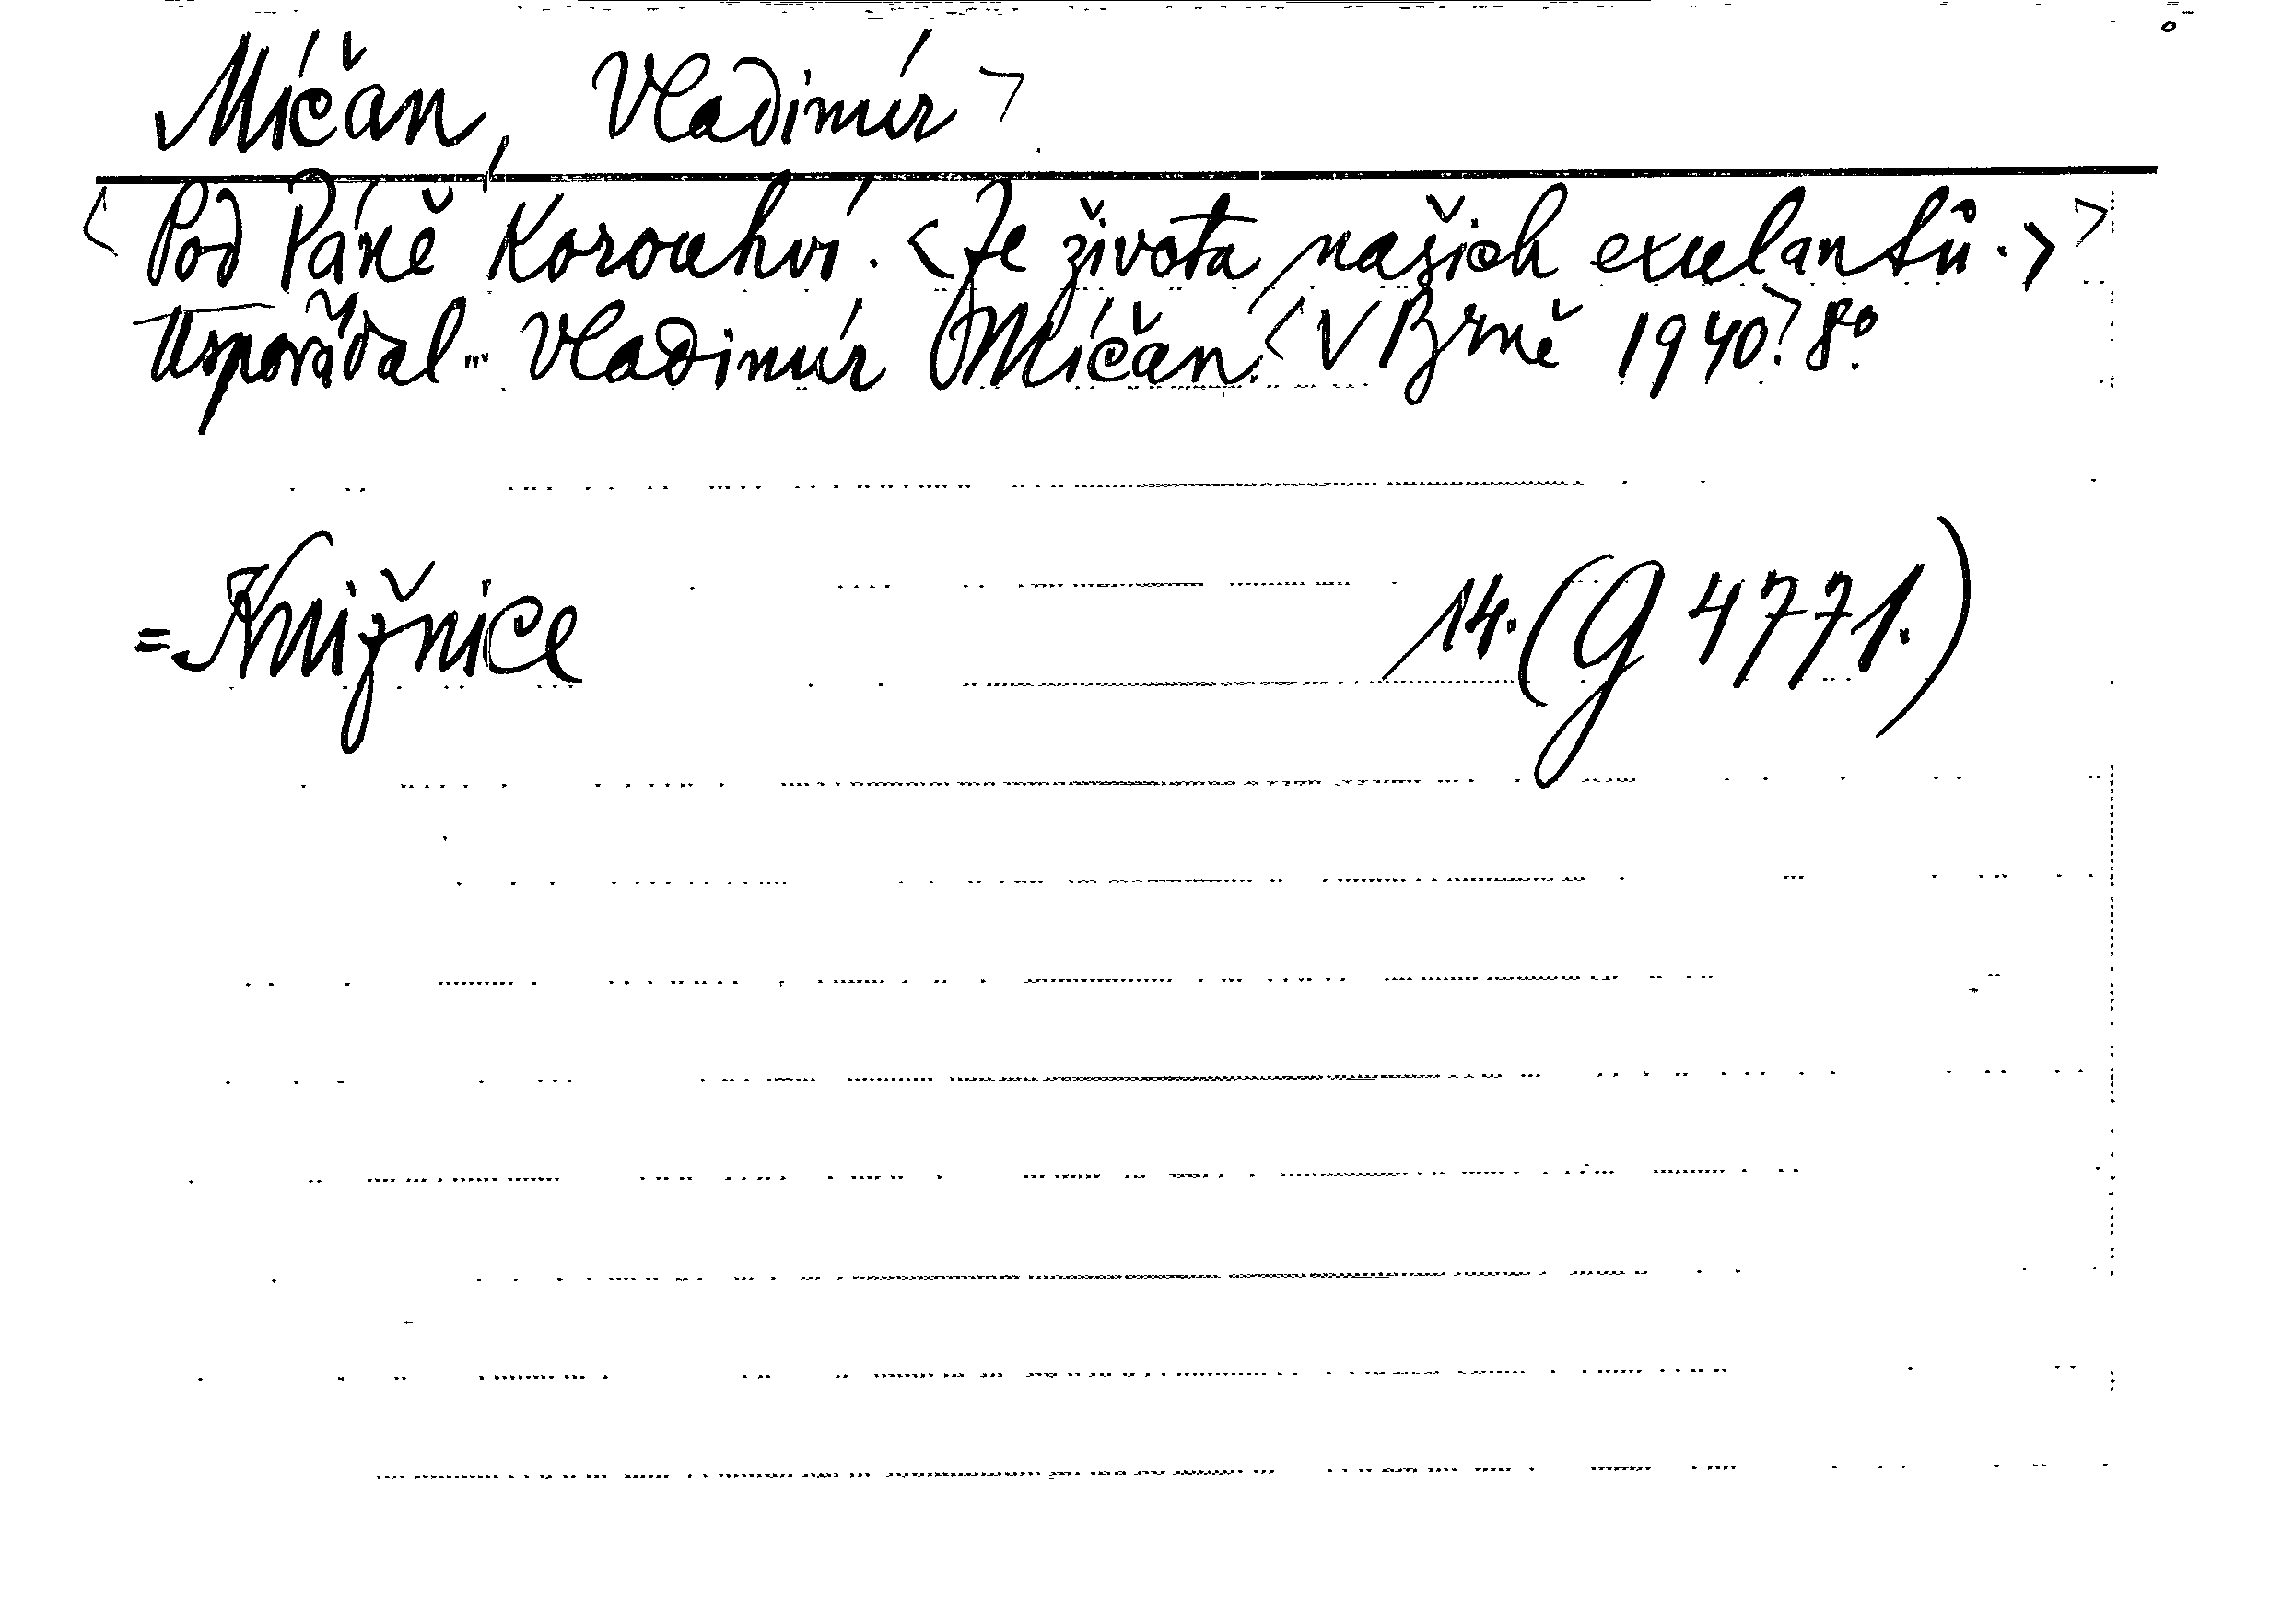 Míčan, Vladimír >
< Pod Páně Korouhví. < Ze života našich exulantů. > >
Uspořádal ... Vladimír Míčan. < V Brně 1940. > 8°.
= Knižnice 14. (G 4771.)